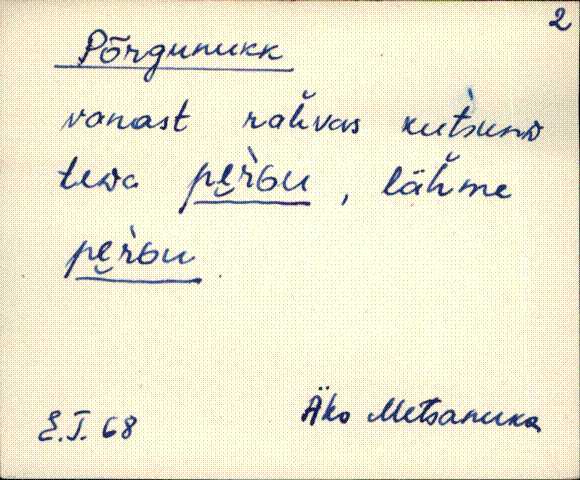 2
Põrgunukk
vanast rah̆vas kut̀sunᴅ
teᴅa pe̮r̀ɢu, läh̆me
pe̮r̀ɢu
E.T. 68
Äko Metsanuka